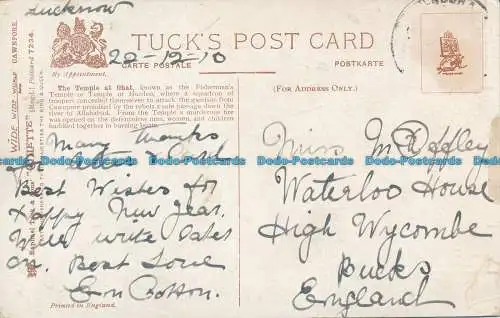 Lucknow
22-12-10
TUCK'S POST CARD
CARTE POSTALE
POSTKARTE
By Appointment.
(FOR ADDRESS ONLY.)
The Temple at Ghat, known as the Fisherman's
Temple or Temple of Hurdeo, where a squadron of
troopers concealed themselves to attack the garrison from
Cawnpore by the rebels'
river to Allahabad. From the Temple a murderous fire
was opened on the defenceless men, women and children
huddled together in burning boats.
Many thanks
for letter
Best Wishes for
Happy New Year.
Will write later
on. Best Love
Printed in England.
Miss M Offley
Waterloo House
High Wycombe
Bucks
England
WIDE WIDE WORLD CAWNPORE
Postcard 7234
Dodo-Postcards Dodo-Postcards Dodo-Postcards Dodo-Postcards